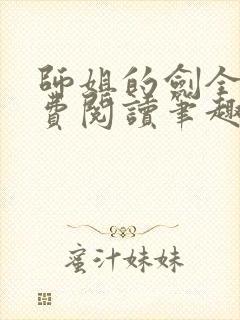 師姐的劍全
費閱讀筆趣
蜜汁妹妹